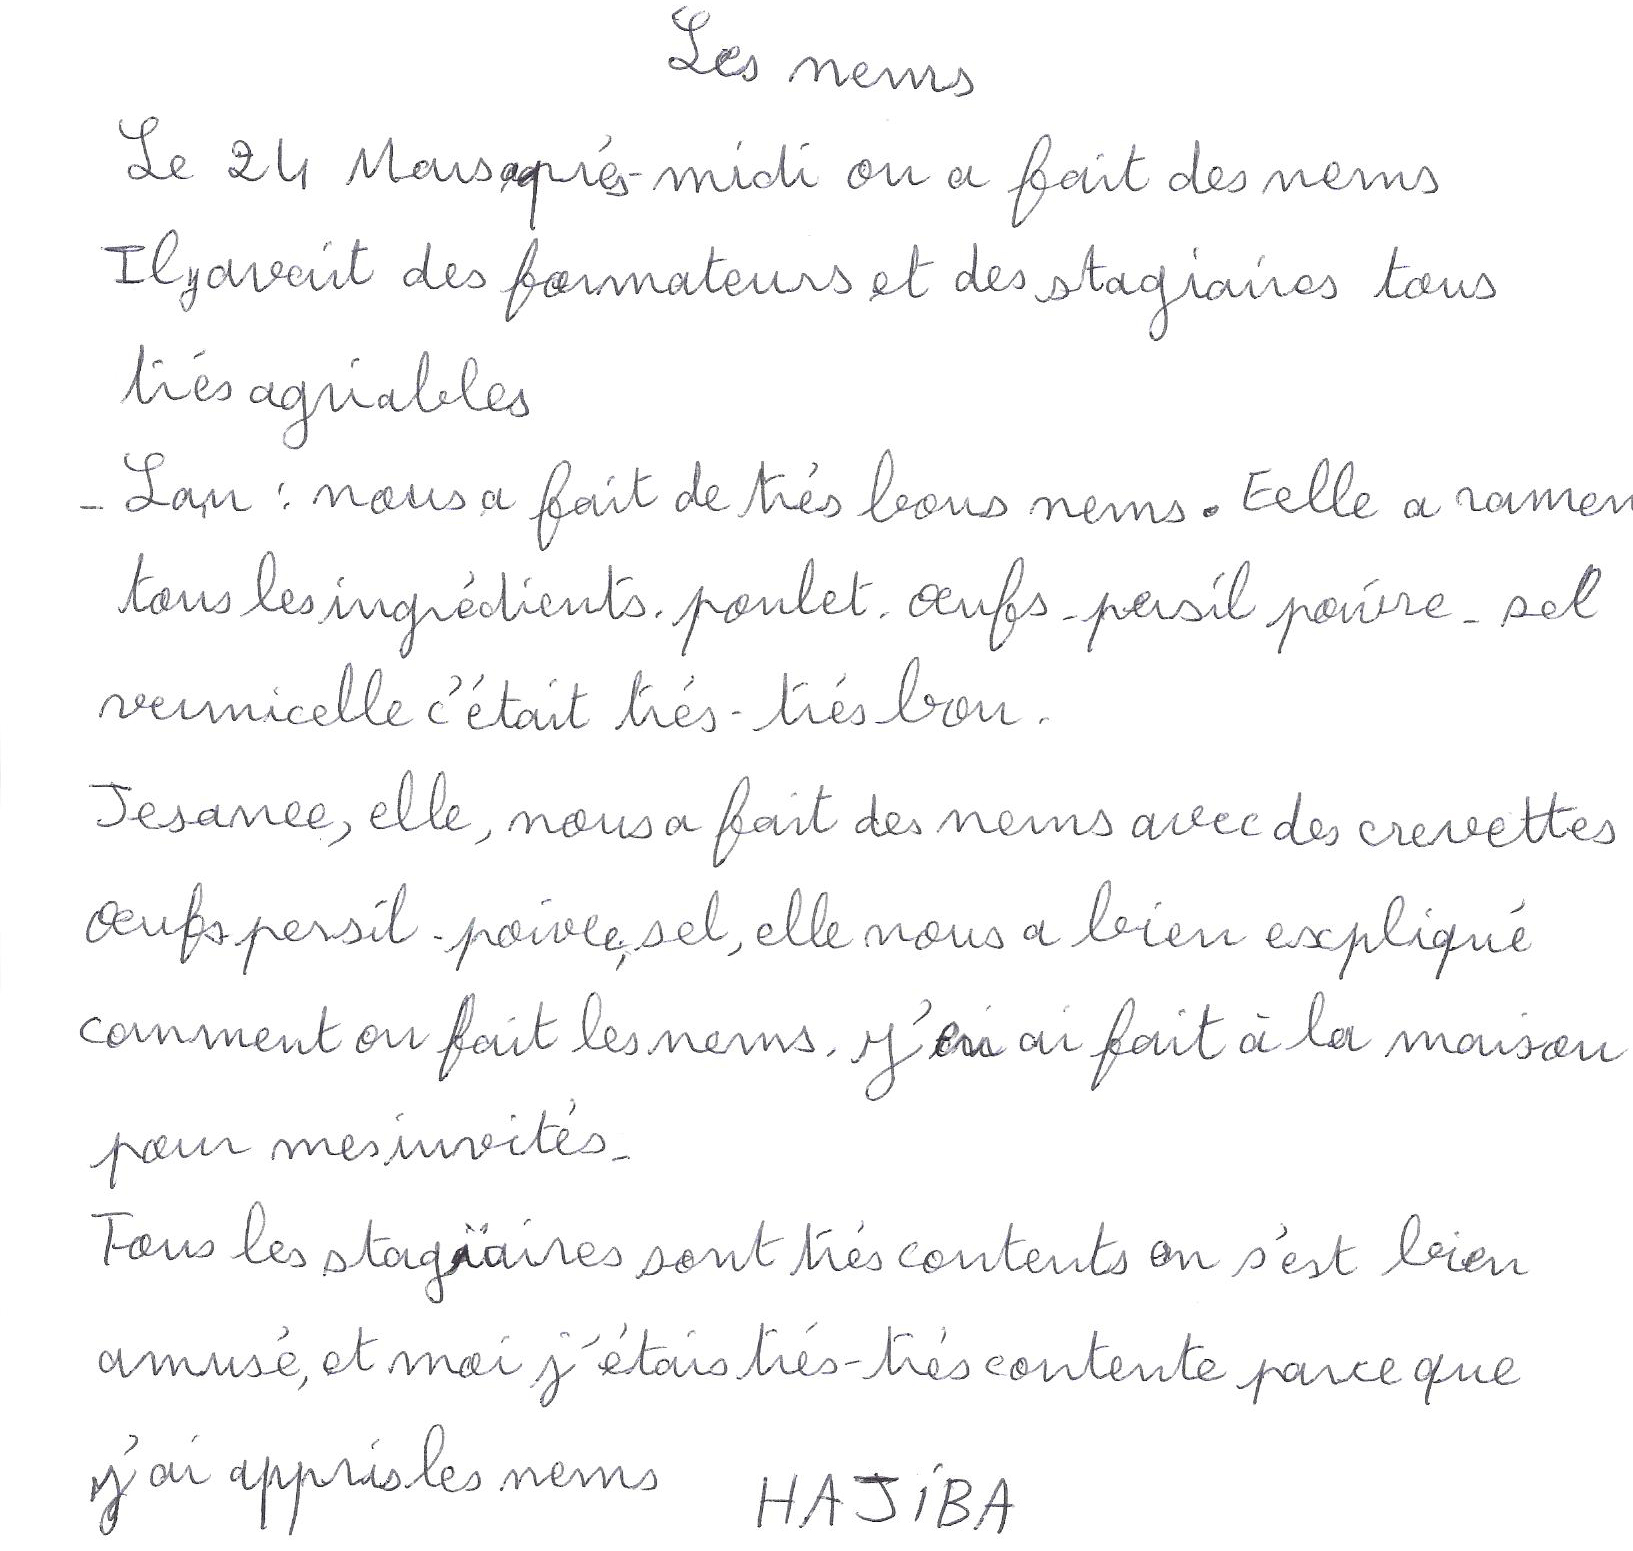 Les nems
Le 24 Mars après-midi on a fait des nems
Il y avait des formateurs et des stagiaires tous
trés agriables
- Lan : nous a fait de trés bons nems. Eelle a ramen
tous les ingrédients. poulet. œufs - persil poivre - sel
vermicelle c'était trés - trés bon.
Jesanee, elle, nous a fait des nems avec des crevettes
œufs persil - poivre, sel, elle nous a bien expliqué
comment on fait les nems. j'en ai fait à la maison
pour mes invités -
Tous les stagiaires sont trés contents on s'est bien
amusé, et moi j'étais trés - trés contente parce que
j'ai appris les nems HAJIBA